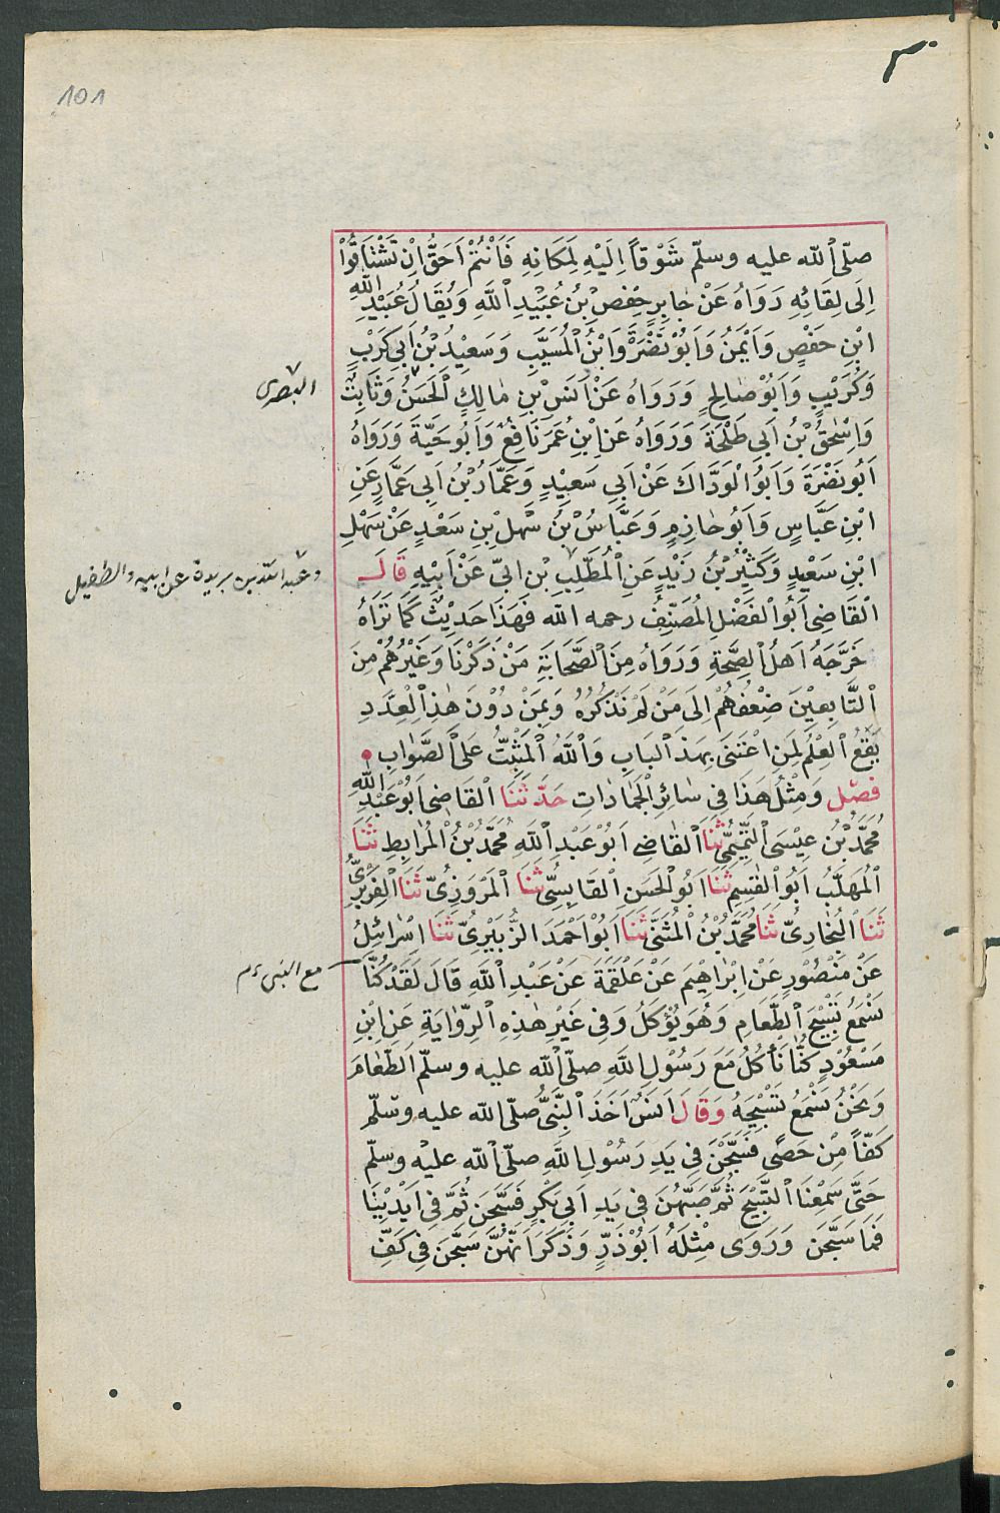 101
صلّى الله عليه وسلّم شَوْقاً اِلَيْهِ لِمَكَانِهِ فَاَنْتُمْ اَحَقُّ اِنْ تَشْتَاقُوْا
اِلَى لِقَائِهِ رَوَاهُ عَنْ جَابِرٍ حَفْصُ بْنُ عُبَيْدِ اللّٰهِ وَيُقَالُ عُبَيْدِ اللّٰهِ
ابْنِ حَفْصٍ وَاَيْمَنُ وَاَبُوْ نَضْرَةَ وَابْنُ الْمُسَيَّبِ وَسَعِيْدُ بْنُ اَبِي كَرْبٍ
وَكُرَيْبٍ وَاَبُوْ صَالِحٍ وَرَوَاهُ عَنْ اَنَسْ بْنِ مَالِكٍ الْحَسَنُ وَثَابِتٌ
البصرى
وَاِسْحٰقُ بْنُ اَبِي طَلْحَةَ وَرَوَاهُ عَنِ ابْنِ عُمَرَ نَافِعٌ وَاَبُو حَيَّةَ وَرَوَاهُ
اَبُو نَضْرَةَ وَاَبُوْ الْوَدَّاكَ عَنْ اَبِي سَعِيْدٍ وَعَمَّارُ بْنُ اَبِي عَمَّارٍ عَنِ
ابْنِ عَبَّاسٍ وَاَبُو حَازِمٍ وَعَبَّاسُ بْنُ سَهْلِ بْنِ سَعْدٍ عَنْ سَهْلِ
ابْنِ سَعِيْدٍ وَكَثِيْرُ بْنُ زَيْدٍ عَنِ الْمُطَّلِبِ بْنِ اَبِيّ عَنْ اَبِيْهِ قَالَ
وعبد الله بن بريدة عن ابيه والطفيل
الْقَاضِى اَبُو الْفَضْلِ الْمُصَنِّفُ رحمه الله فَهَذَا حَدِيْثٌ كَمَا تَرَاهُ
خَرَّجَهُ اَهلُ الصِّحَةِ وَرَوَاهُ مِنَ الصَّحَابَةِ مَنْ ذَكَرْنَا وَغَيْرُهُمْ مِنَ
التَّابِعِيْنَ ضِعْفُهُمْ اِلَى مَنْ لَمْ نَذْكُرْهُ وَبِمَنْ دُوْنَ هٰذَا الْعَدَدِ
يَقَعُ الْعِلْمُ لِمَنِ اعْتَنَى بِهَذَا الْبَابِ وَاللّٰهُ الْمُثَبِّتُ عَلَى الصَّوَابِ
فصل وَمِثْلُ هَذَا فِي سَائِرِ الْجَمَادَاتِ حَدَّثَنَا الْقَاضِى اَبُوْ عَبْدِ اللّٰهِ
مُحَمَّدُ بْنُ عِيْسَى التَّمِيْمِيُّ ثَنَا الْقَاضِى اَبُوْ عَبْدِ اللّٰهِ مُحَمَّدُ بْنُ الْمُرَابِطِ ثَنَا
الْمُهَلَّبُ اَبُو الْقٰسِمِ ثَنَا اَبُو الْحَسَنِ الْقَابِسِيُّ ثَنَا الْمَرْوَزِىُّ ثَنَا الْفَرَبْرِىُّ
ثَنَا الْبُخَارِىُّ ثَنَا مُحَمَّدُ بْنُ الْمُثَنَّى ثَنَا اَبُوْ اَحْمَدَ الزُّبَيْرِىُّ ثَنَا اِسْرَائِلُ
عَنْ مَنْصُوْرٍ عَنْ اِبْرَاهِيْمَ عَنْ عَلْقَمَةَ عَنْ عَبْدِ اللّٰهِ قَالَ لَقَدْ كُنَّا
مع النبى عم
نَسْمَعُ تَسْبِيْحَ الطَّعَامِ وَهُوَ يُؤْكَلُ وَفِى غَيْرِ هٰذِهِ الرِّوَايَةِ عَنِ ابْنِ
مَسْعُوْدٍ كُنَّا نَأْكُلُ مَعَ رَسُوْلِ اللّٰهِ صلّى الله عليه وسلّم الطَّعَامَ
وَنَحْنُ نَسْمَعُ تَسْبِيْحَهُ وَقَالَ اَنَسٌ اَخَذَ النَّبِىُّ صلّى الله عليه وسلّم
كَفّاً مِنْ حَصًى فَسَبَّحْنَ فِى يَدِ رَسُوْلِ اللّٰهِ صلّى الله عليه وسلّم
حَتَّى سَمِعْنَا التَّسْبِيْحَ ثُمَّ صَبَّهُنَ فِى يَدِ اَبِى بَكْرٍ فَسَبَّحْنَ ثُمَّ فِى اَيْدِيْنَا
فَمَا سَبَّحْنَ وَرَوَى مِثْلَهُ اَبُوْ ذَرٍّ وَذَكَرَ اَنَّهُنَّ سَبَّحْنَ فِى كَفِّ